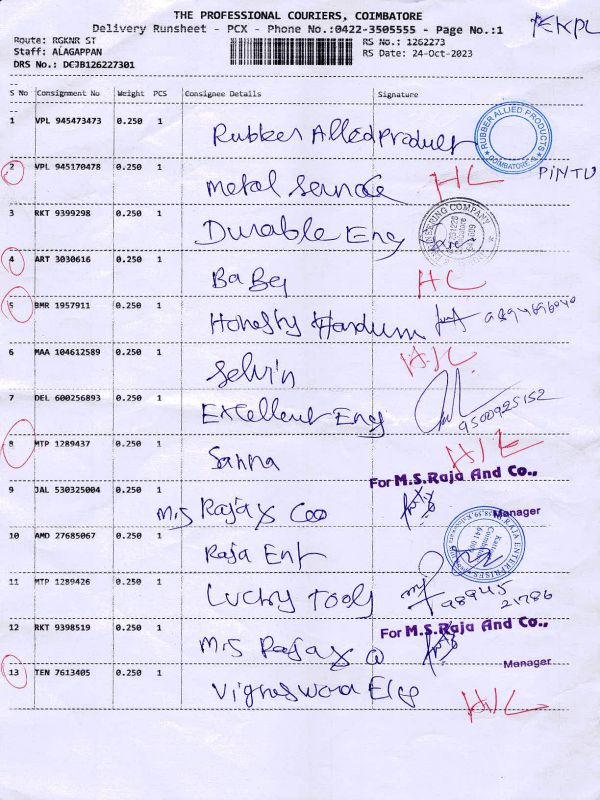 THE PROFESSIONAL COURIERS, COIMBATORE
Delivery Runsheet - PCX - Phone No.:0422-3505555 - Page No.:1
Route: RGKNR ST RS No.: 1262273
Staff: ALAGAPPAN RS Date: 24-Oct-2023
DRS No.: DEJB126227301
S No Consignment No Weight PCS Consignee Details Signature
1 VPL 945473473 0.250 1 Rubber Allied Product RUBBER ALLIED PRODUCTS COIMBATORE
2 VPL 945170478 0.250 1 Metal Service HC PINTU
3 RKT 9399298 0.250 1 Durable Eng
4 ART 3030616 0.250 1 Baby HC
5 BMR 1957911 0.250 1 Honesty
6 MAA 104612589 0.250 1 Selvin H/C
7 DEL 600256893 0.250 1 Excellent Eng 9500925152
8 MTP 1289437 0.250 1 Sanna
For M.S.Raja And Co.,
9 JAL 530325004 0.250 1 M/s Raja & Coo Manager
10 AMD 27685067 0.250 1 Raja Ent RAJA ENTERPRISES
11 MTP 1289426 0.250 1 Lucky Tools 98945 21786
12 RKT 9398519 0.250 1 M/s Raja & For M.S.Raja And Co.,
Manager
13 TEN 7613405 0.250 1 H/C